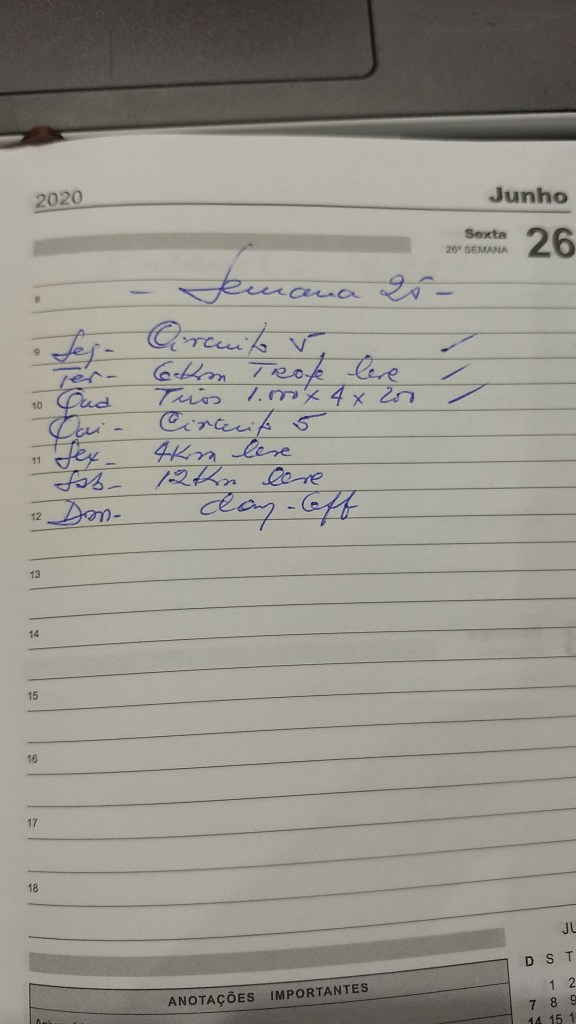 2020 Junho
Sexta 26
26ª SEMANA
8 - Semana 25 -
9 Seg- Circuito 5
Ter- 6km Trote leve
10 Qua Tiros 1.000 x 4 x 200
Qui- Circuito 5
11 Sex- 4km leve
Sab- 12km leve
12 Dom- day-off
13
14
15
16
17
18
JU
D S T
ANOTAÇÕES IMPORTANTES
1 2
7 8 9
14 15 1